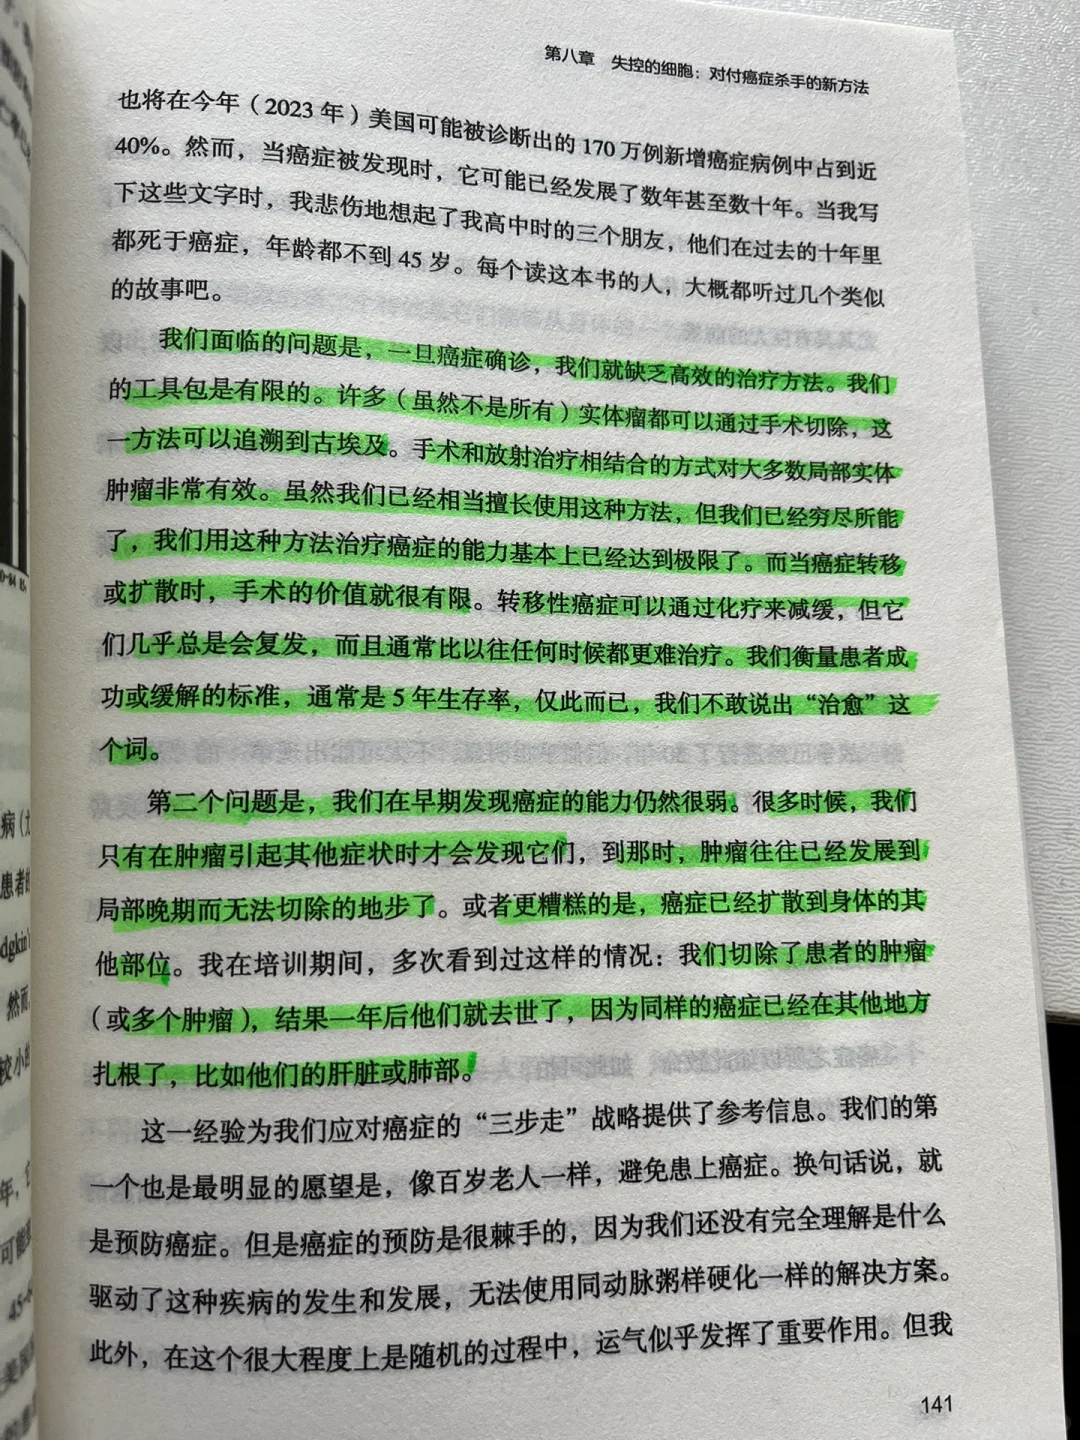 第八章 失控的细胞：对付癌症杀手的新方法
也将在今年（2023 年）美国可能被诊断出的 170 万例新增癌症病例中占到近
40%。然而，当癌症被发现时，它可能已经发展了数年甚至数十年。当我写
下这些文字时，我悲伤地想起了我高中时的三个朋友，他们在过去的十年里
都死于癌症，年龄都不到 45 岁。每个读这本书的人，大概都听过几个类似
的故事吧。
我们面临的问题是，一旦癌症确诊，我们就缺乏高效的治疗方法。我们
的工具包是有限的。许多（虽然不是所有）实体瘤都可以通过手术切除，这
一方法可以追溯到古埃及。手术和放射治疗相结合的方式对大多数局部实体
肿瘤非常有效。虽然我们已经相当擅长使用这种方法，但我们已经穷尽所能
了，我们用这种方法治疗癌症的能力基本上已经达到极限了。而当癌症转移
或扩散时，手术的价值就很有限。转移性癌症可以通过化疗来减缓，但它
们几乎总是会复发，而且通常比以往任何时候都更难治疗。我们衡量患者成
功或缓解的标准，通常是 5 年生存率，仅此而已，我们不敢说出“治愈”这
个词。
第二个问题是，我们在早期发现癌症的能力仍然很弱。很多时候，我们
只有在肿瘤引起其他症状时才会发现它们，到那时，肿瘤往往已经发展到
局部晚期而无法切除的地步了。或者更糟糕的是，癌症已经扩散到身体的其
他部位。我在培训期间，多次看到过这样的情况：我们切除了患者的肿瘤
（或多个肿瘤），结果一年后他们就去世了，因为同样的癌症已经在其他地方
扎根了，比如他们的肝脏或肺部。
这一经验为我们应对癌症的“三步走”战略提供了参考信息。我们的第
一个也是最明显的愿望是，像百岁老人一样，避免患上癌症。换句话说，就
是预防癌症。但是癌症的预防是很棘手的，因为我们还没有完全理解是什么
驱动了这种疾病的发生和发展，无法使用同动脉粥样硬化一样的解决方案。
此外，在这个很大程度上是随机的过程中，运气似乎发挥了重要作用。但我
141